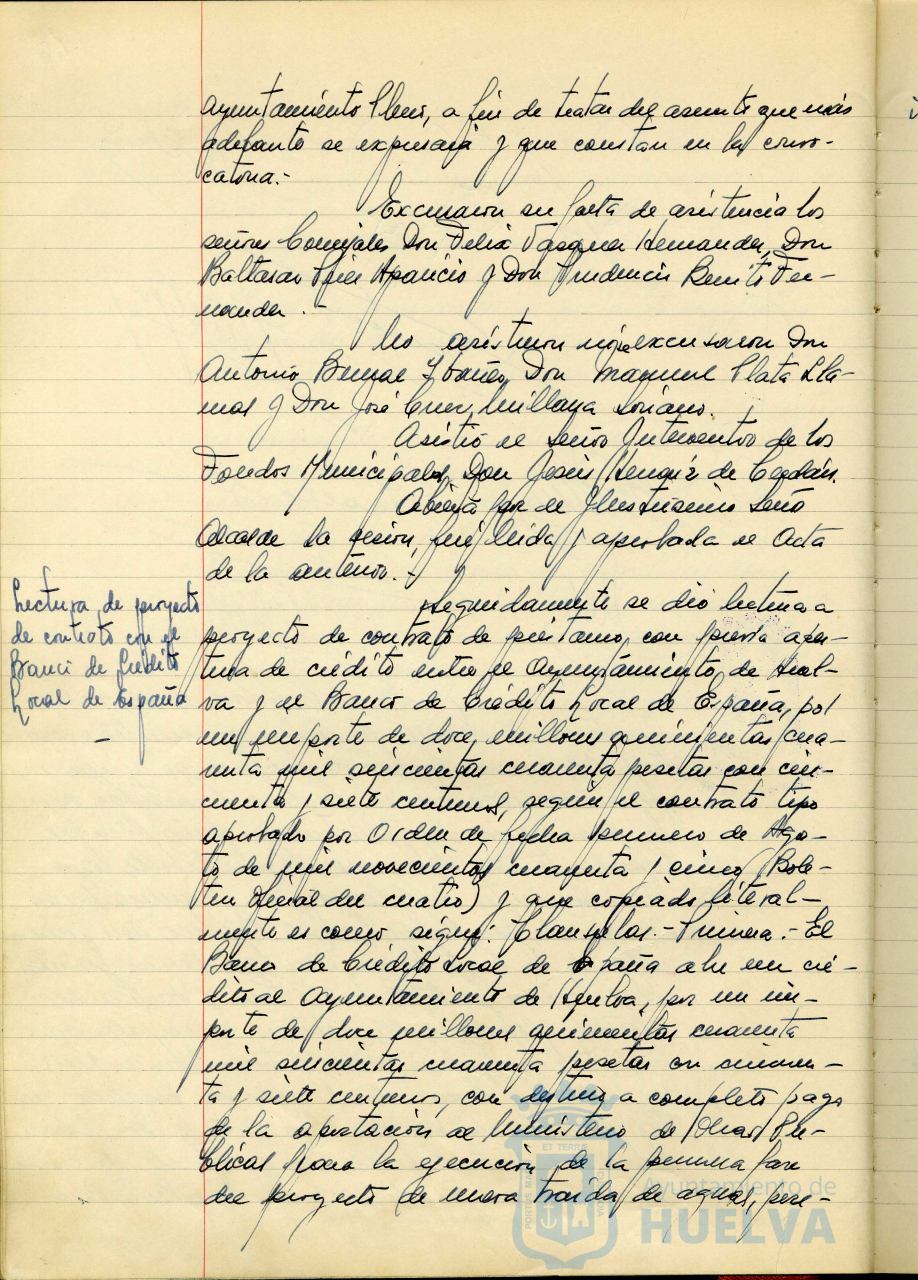 Ayuntamiento Pleno, a fin de tratar del asunto que más
adelante se expresará y que constan en la convo-
catoria.-
Excusaron su falta de asistencia los
señores Concejales Don Felix Vazquez Hernandez, Don
Baltasar Aparicio y Don Prudencio Benito Fer-
nandez.-
No asistieron ni se excusaron Don
Antonio Bernal Ybañez, Don Manuel Plata Lla-
nas y Don José Cruz Millana Soriano.
Asistió el Señor Interventor de los
Fondos Municipales, Don Jesús de
Abierta por el Ilustrisimo Señor
Alcalde la sesión, fué leida y aprobada el Acta
de la anterior.-
Lectura de proyecto
de contrato con el
Banco de Crédito
Local de España
-
Seguidamente se dió lectura a
proyecto de contrato de préstamo, con previa aper-
tura de crédito entre el Ayuntamiento de Huel-
va y el Banco de Crédito Local de España, por
un importe de doce millones quinientas cua-
renta mil seiscientas cuarenta pesetas con cin-
cuenta y siete centimos, según el contrato tipo
aprobado por Orden de fecha primero de Agos-
to de mil novecientos cuarenta y cinco (Bole-
tin Oficial del cuatro) y que copiado literal-
mente es como sigue: Clausulas.- Primera.- El
Banco de Crédito Local de España abre un cré-
dito al Ayuntamiento de Huelva, por un im-
porte de doce millones quinientas cuarenta
mil seiscientas cuarenta pesetas con cincuen-
ta y siete centimos, con destino a completo pago
de la aportación al Ministerio de Obras Pú-
blicas para la ejecución de la primera fase
del proyecto de nueva traida de aguas, pre-
PORTUS MARIS ET TERRAE
Ayuntamiento de
HUELVA